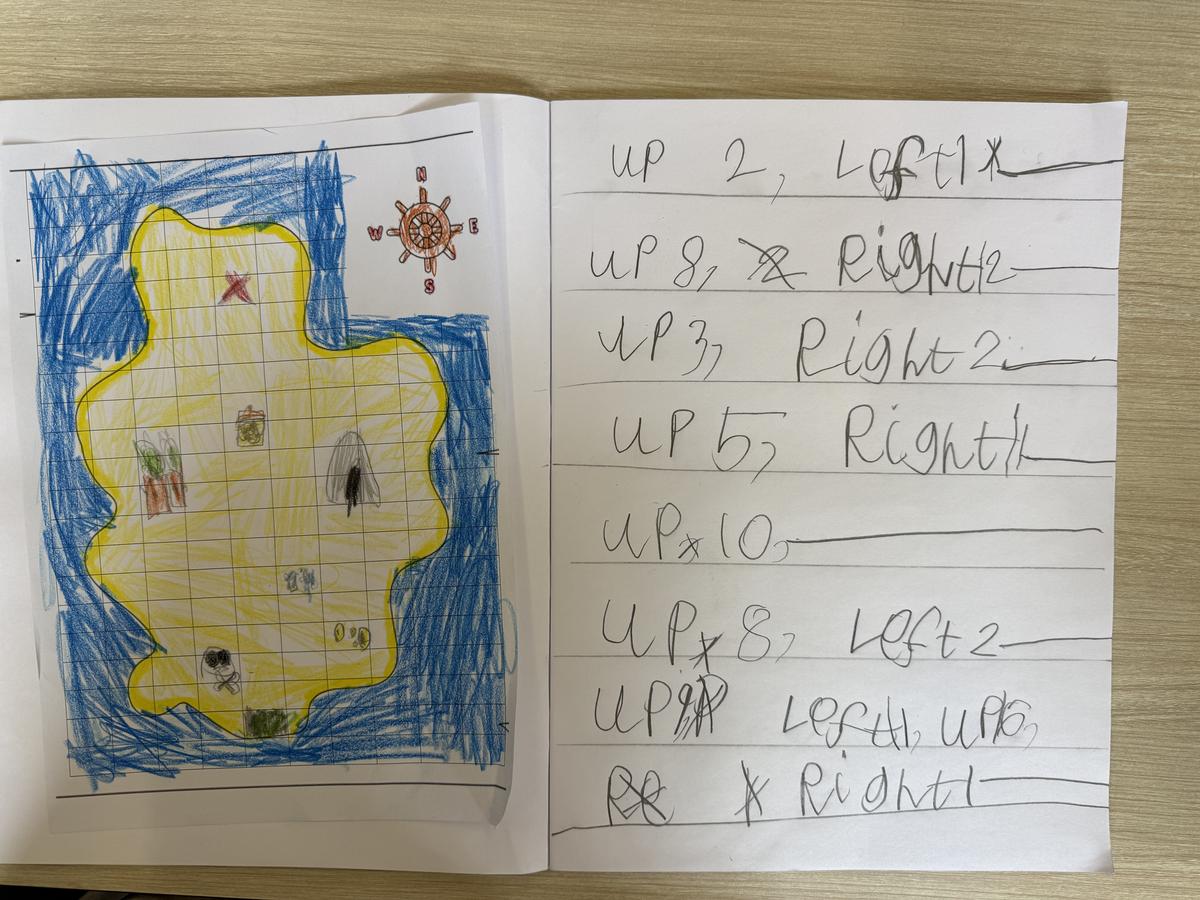 N
W E
S
UP 2, Left 1
UP 8, Right 2
UP 3, Right 2
UP 5, Right 1
UP 10,
UP 8, Left 2
UP Left 1, UP 5,
Right 1